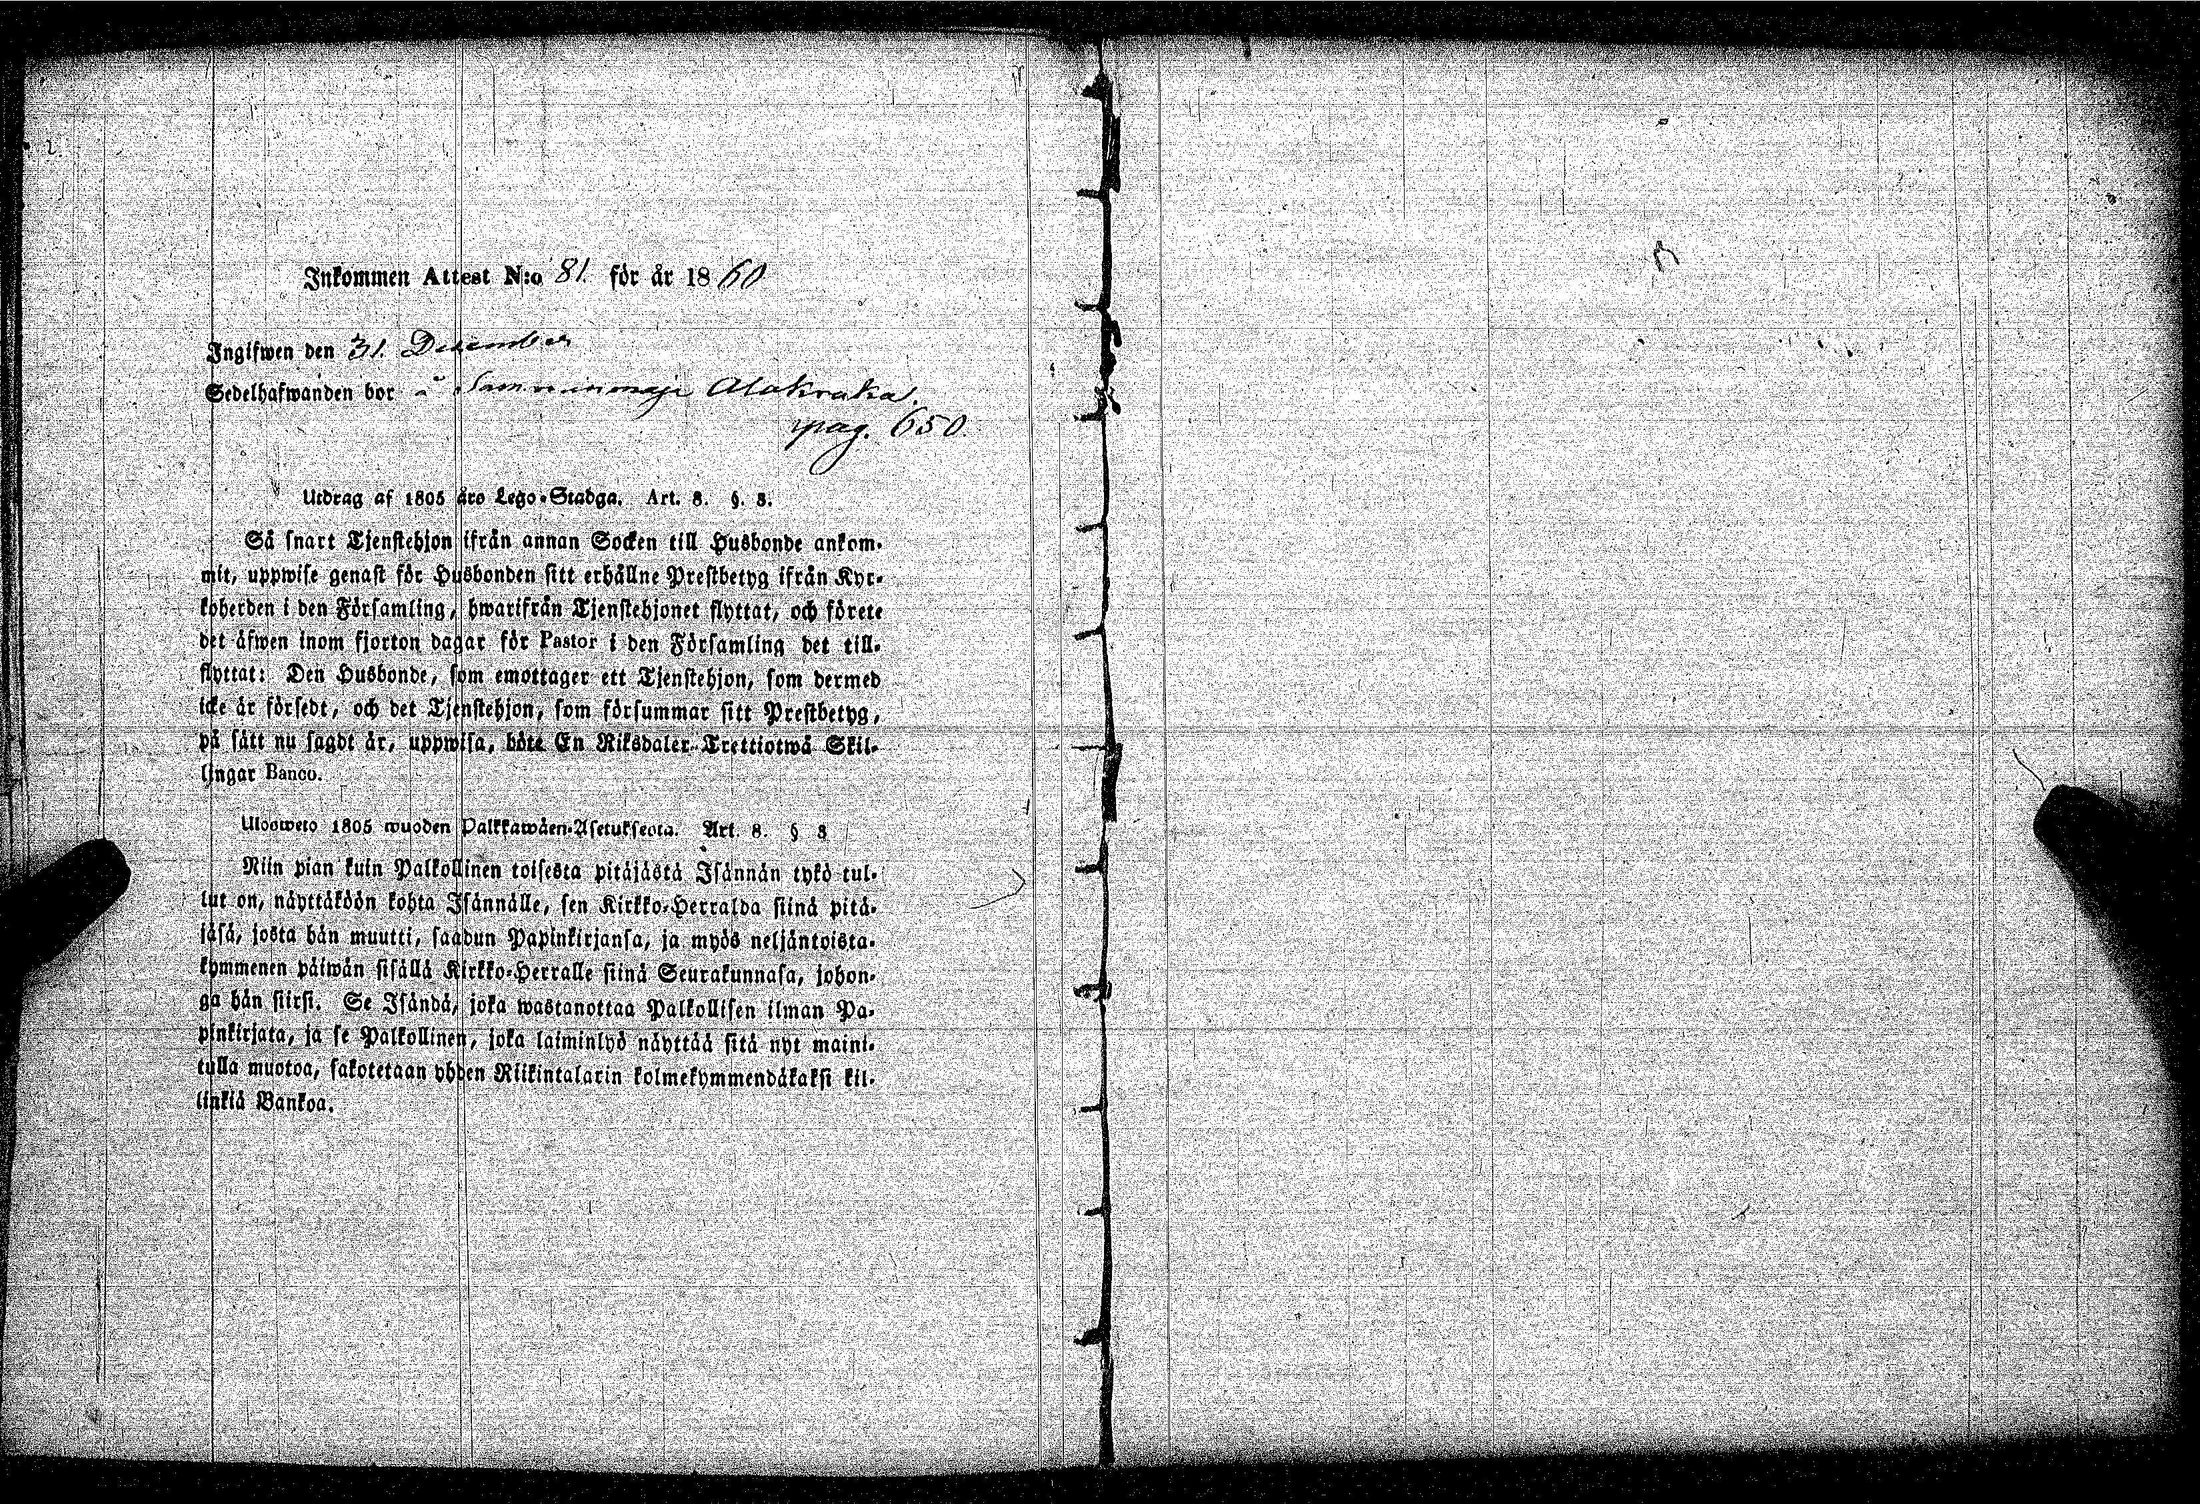 Inkommen Attest N:o 81. för år 1860
Ingifwen den 31. December
Sedelhafwanden bor å Alakraka.
pag. 650.
Utdrag af 1805 års Lego-Stadga. Art. 8. §. 3.
Så snart Tjenstehjon ifrån annan Socken till Husbonde ankom-
mit, uppwise genast för Husbonden sitt erhållne Prestbetyg ifrån Kyr-
koherden i den Församling, hwarifrån Tjenstehjonet flyttat, och förete
det äfwen inom fjorton dagar för Pastor i den Församling det till-
flyttat: Den Husbonde, som emottager ett Tjenstehjon, som dermed
icke är försedt, och det Tjenstehjon, som försummar sitt Prestbetyg,
på sätt nu sagdt är, uppwisa, böte En Riksdaler Trettiotwå Skil-
lingar Banco.
Ulosweto 1805 wuoden Palkkawäen-Asetuksesta. Art. 8. § 3
Niin pian kuin Palkollinen toisesta pitäjästä Isännän tykö tul-
lut on, näyttäköön kohta Isännälle, sen Kirkko-Herralda siinä pitä-
jäsä, josta hän muutti, saadun Papinkirjansa, ja myös neljäntoista-
kymmenen päiwän sisällä Kirkko-Herralle siinä Seurakunnasa, johon-
ga hän siirsi. Se Isändä, joka wastanottaa Palkollisen ilman Pa-
pinkirjata, ja se Palkollinen, joka laiminlyö näyttää sitä nyt maini-
tulla muotoa, sakotetaan yhden Riikintalarin kolmekymmendäkaksi kil-
linkiä Bankoa.